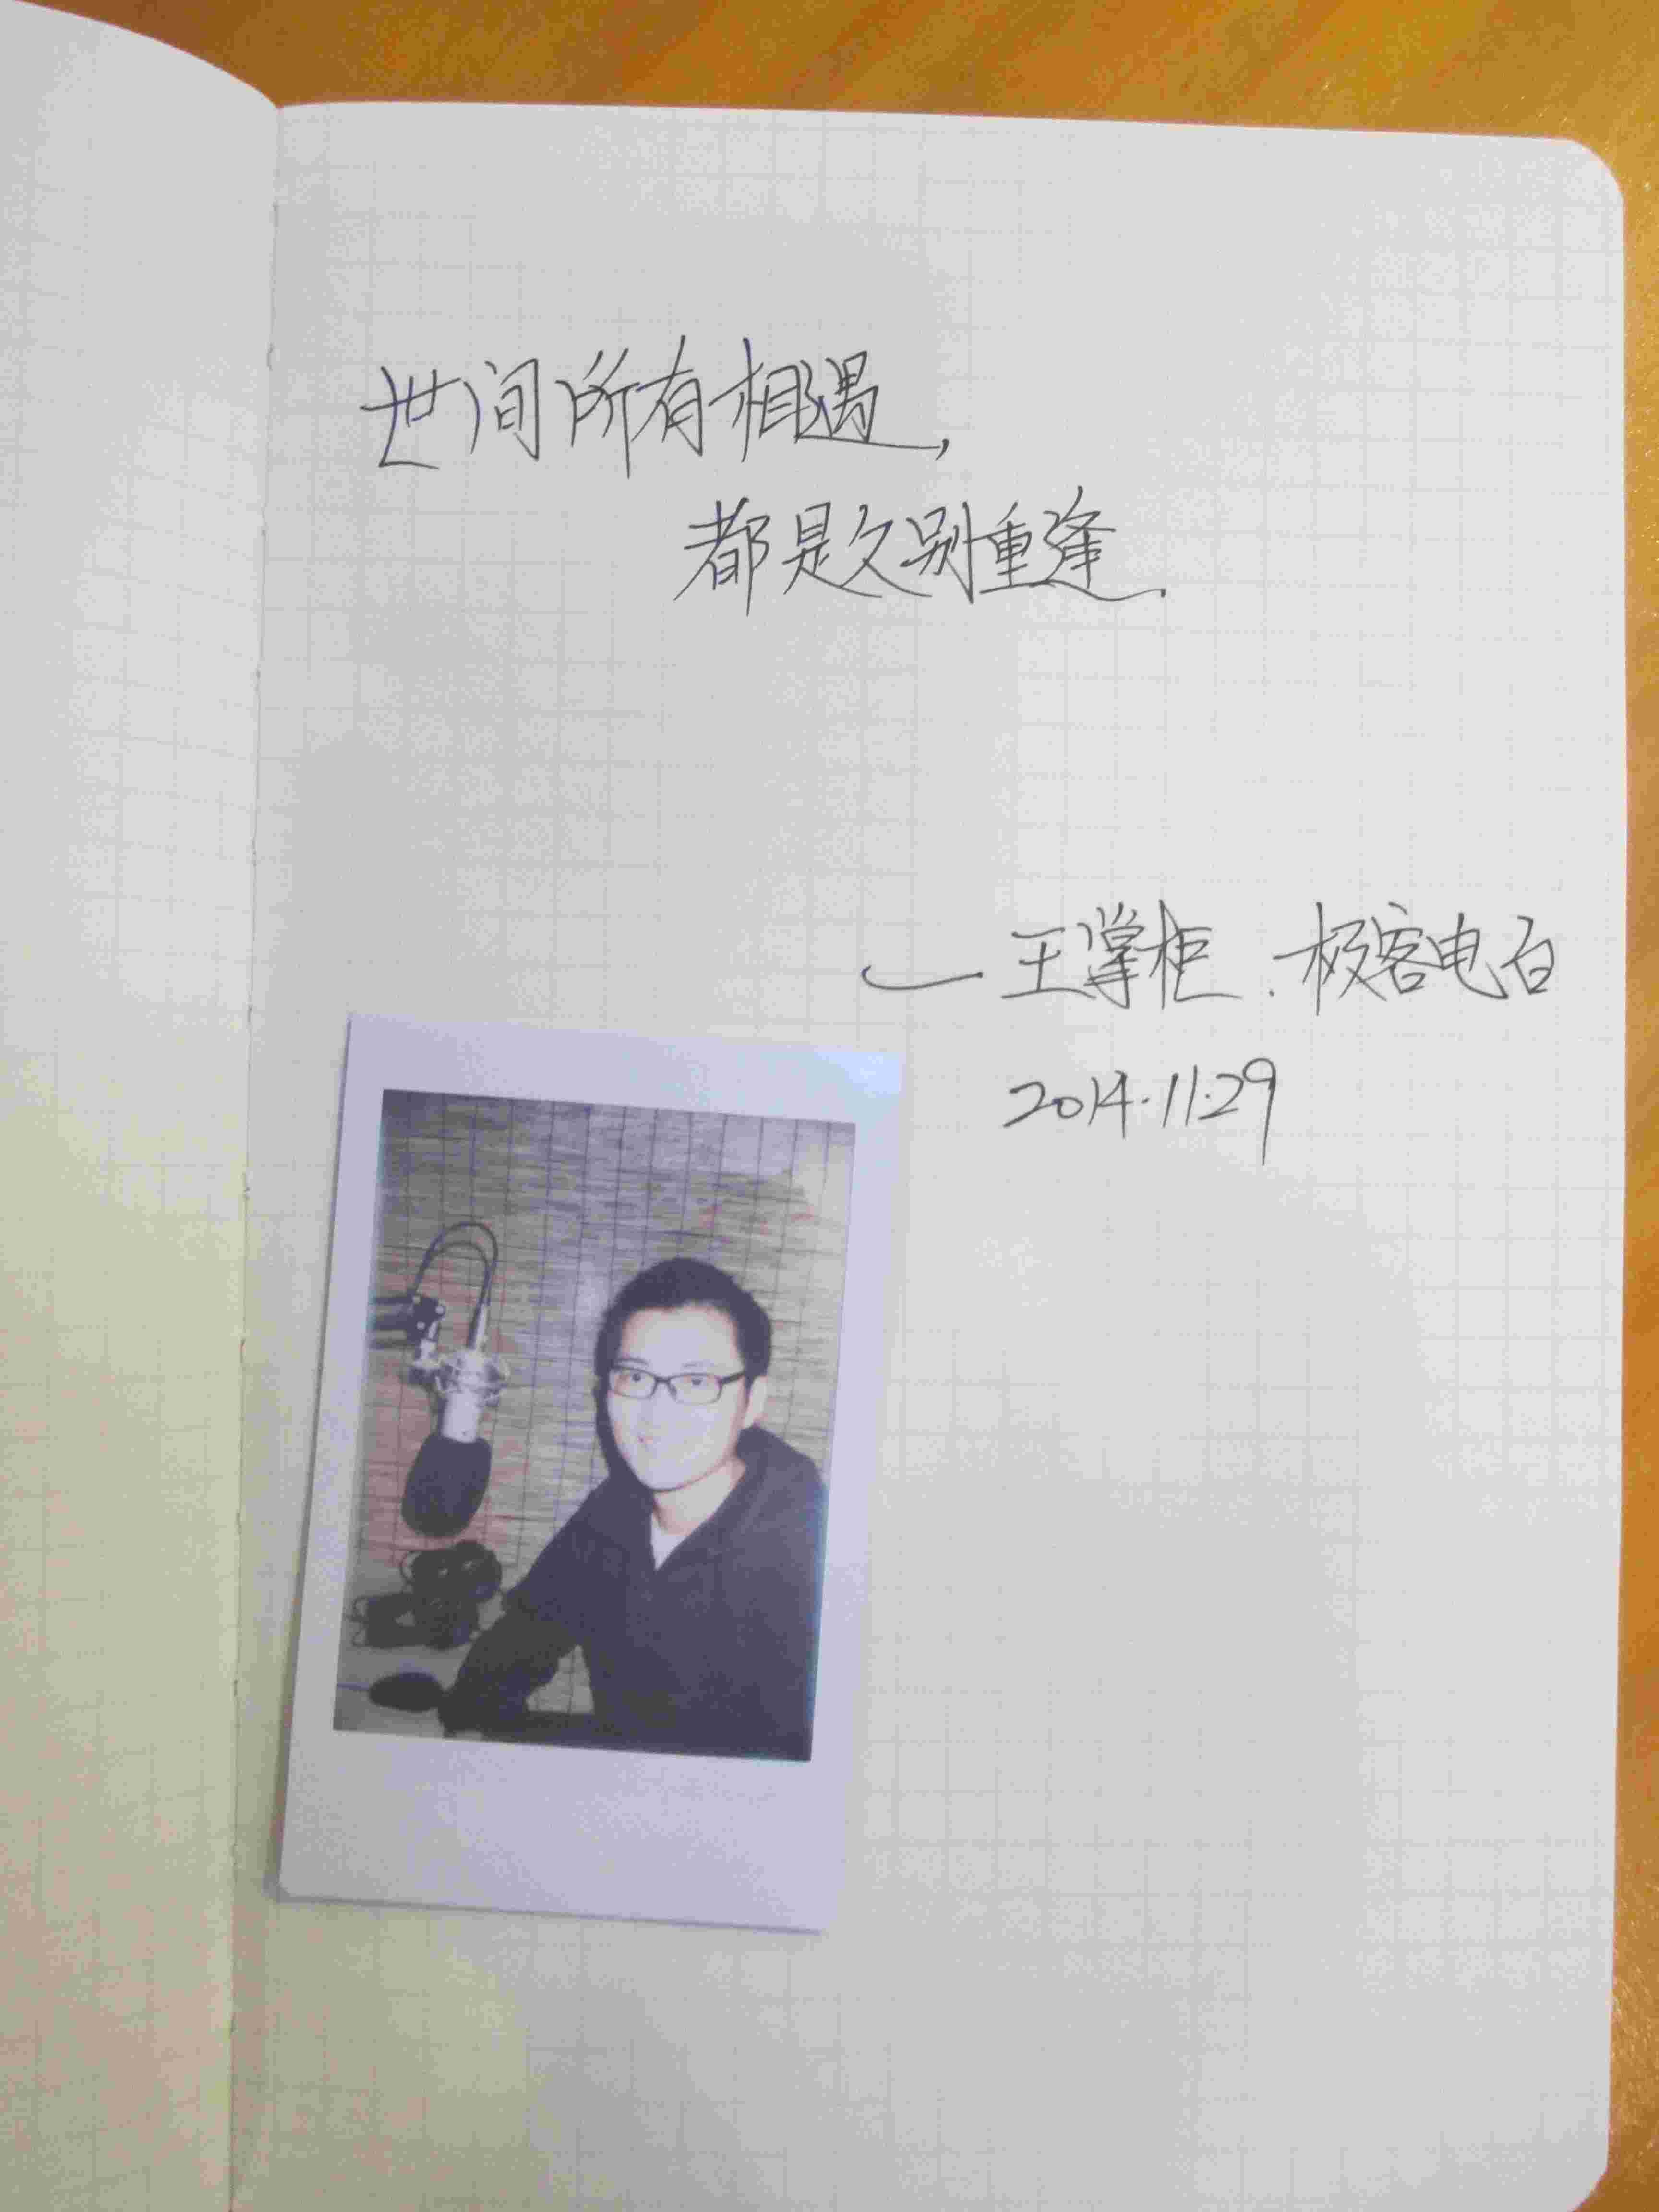 世间所有相遇,
都是久别重逢.
— 王掌柜.极客电台
2014.11.29